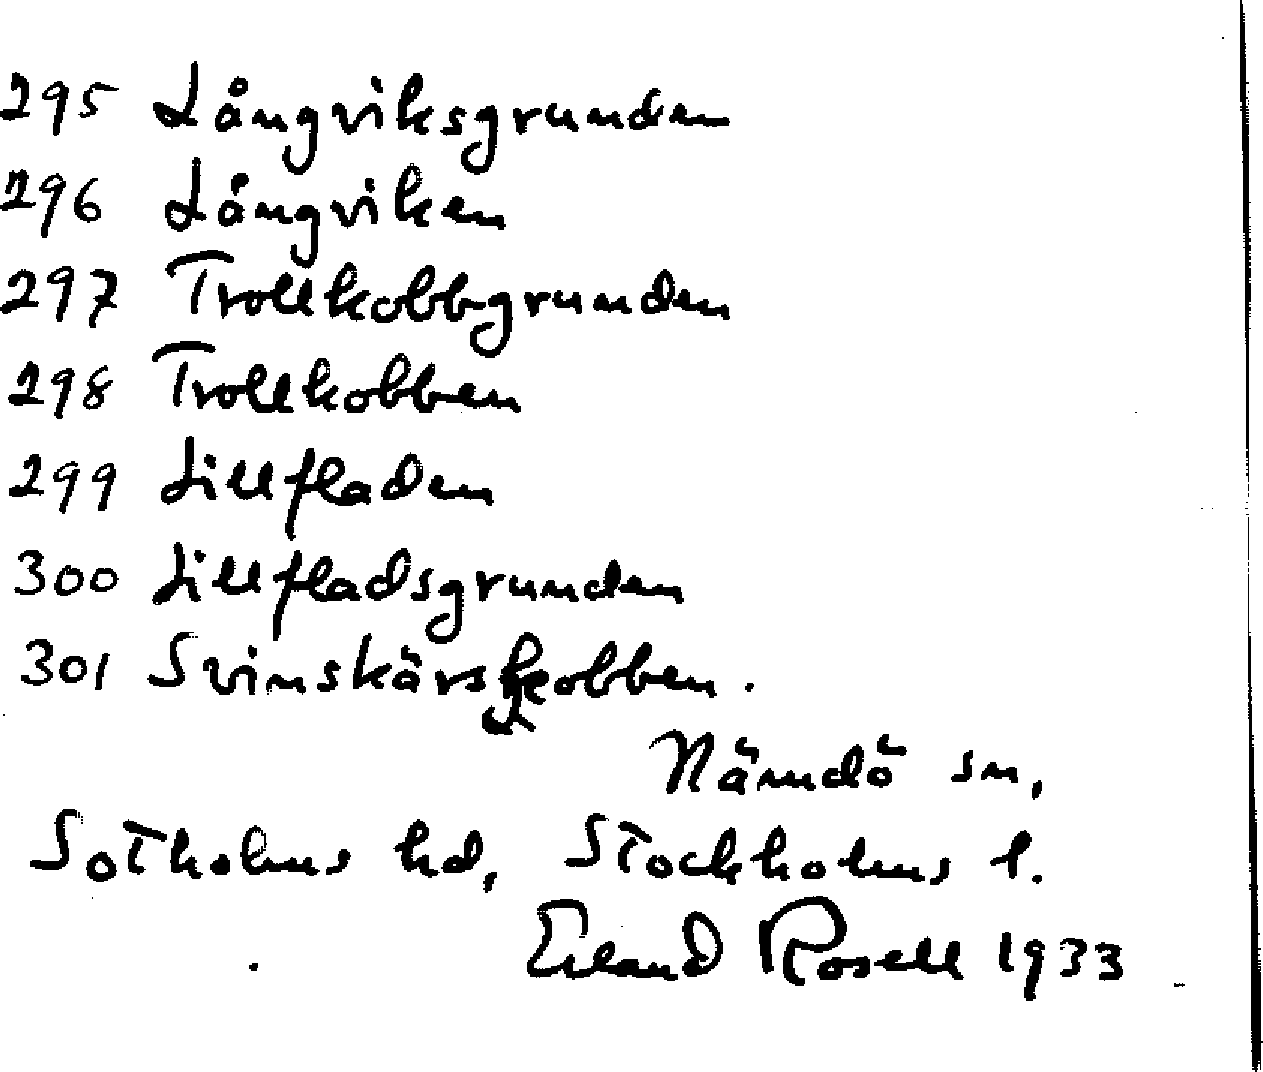 295 Långviksgrunden
296 Långviken
297 Trollkobbgrunden
298 Trollkobben
299 Lillfladen
300 Lillfladsgrunden
301 Svinskärskobben.
Nämdö sn,
Sotholms hd, Stockholms l.
Erland Rosell 1933